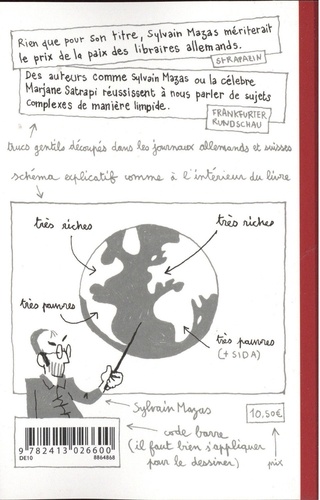 Rien que pour son titre, Sylvain Mazas mériterait
le prix de la paix des libraires allemands.
STRAPAZIN
Des auteurs comme Sylvain Mazas ou la célèbre
Marjane Satrapi réussissent à nous parler de sujets
complexes de manière limpide.
FRANKFURTER
RUNDSCHAU
trucs gentils découpés dans les journaux allemands et suisses
schéma explicatif comme à l'intérieur du livre
très riches
très riches
très pauvres
très pauvres
(+ SIDA)
Sylvain Mazas
10,50€
code barre
(il faut bien s'appliquer
pour le dessiner)
prix
9 782413 026600
DE10 8864868